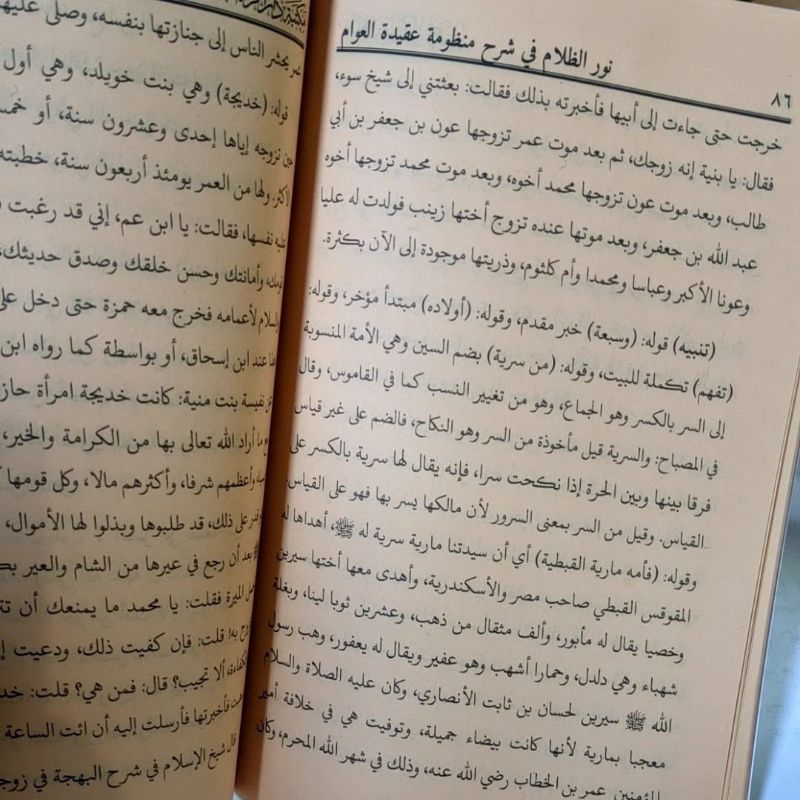 ٨٦
نور الظلام في شرح منظومة عقيدة العوام
خرجت حتى جاءت إلى أبيها فأخبرته بذلك فقالت: بعثتني إلى شيخ سوء،
فقال: يا بنية إنه زوجك، ثم بعد موت عمر تزوجها عون بن جعفر بن أبي
طالب، وبعد موت عون تزوجها محمد أخوه، وبعد موت محمد تزوجها أخوه
عبد الله بن جعفر، وبعد موتها عنده تزوج أختها زينب فولدت له عليا
وعونا الأكبر وعباسا ومحمدا وأم كلثوم، وذريتها موجودة إلى الآن بكثرة.
(تنبيه) قوله: (وسبعة) خبر مقدم، وقوله: (أولاده) مبتدأ مؤخر، وقوله:
(تفهم) تكملة للبيت، وقوله: (من سرية) بضم السين وهي الأمة المنسوبة
إلى السر بالكسر وهو الجماع، وهو من تغيير النسب كما في القاموس، وقال
في المصباح: والسرية قيل مأخوذة من السر وهو النكاح، فالضم على غير قياس
فرقا بينها وبين الحرة إذا نكحت سرا، فإنه يقال لها سرية بالكسر على
القياس. وقيل من السر بمعنى السرور لأن مالكها يسر بها فهو على القياس.
وقوله: (فأمه مارية القبطية) أي أن سيدتنا مارية سرية له ﷺ، أهداها له
المقوقس القبطي صاحب مصر والأسكندرية، وأهدى معها أختها سيرين
وخصيا يقال له مأبور، وألف مثقال من ذهب، وعشرين ثوبا لينا، وبغلة
شهباء وهي دلدل، وحمارا أشهب وهو عفير ويقال له يعفور، وهب رسول
الله ﷺ سيرين لحسان بن ثابت الأنصاري، وكان عليه الصلاة والسلام
معجبا بمارية لأنها كانت بيضاء جميلة، وتوفيت هي في خلافة أمير
المؤمنين عمر بن الخطاب رضي الله عنه، وذلك في شهر الله المحرم، وكان
يحشر الناس إلى جنازتها بنفسه، وصلى عليها
قوله: (خديجة) وهي بنت خويلد، وهي أول
تزوجه إياها إحدى وعشرون سنة، أو خمس
الأكثر. ولها من العمر يومئذ أربعون سنة، خطبته
عليه نفسها، فقالت: يا ابن عم، إني قد رغبت
وأمانتك وحسن خلقك وصدق حديثك،
لأعمامه فخرج معه حمزة حتى دخل على
عند ابن إسحاق، أو بواسطة كما رواه ابن
نفيسة بنت منية: كانت خديجة امرأة
ما أراد الله تعالى بها من الكرامة والخير،
وأعظمهم شرفا، وأكثرهم مالا، وكل قومها
على ذلك، قد طلبوها وبذلوا لها الأموال،
بعد أن رجع في عيرها من الشام والعير
الميرة فقلت: يا محمد ما يمنعك أن
به! قلت: فإن كفيت ذلك، ودعيت
ألا تجيب؟ قال: فمن هي؟ قلت:
فأخبرتها فأرسلت إليه أن ائت الساعة
قال شيخ الإسلام في شرح البهجة في